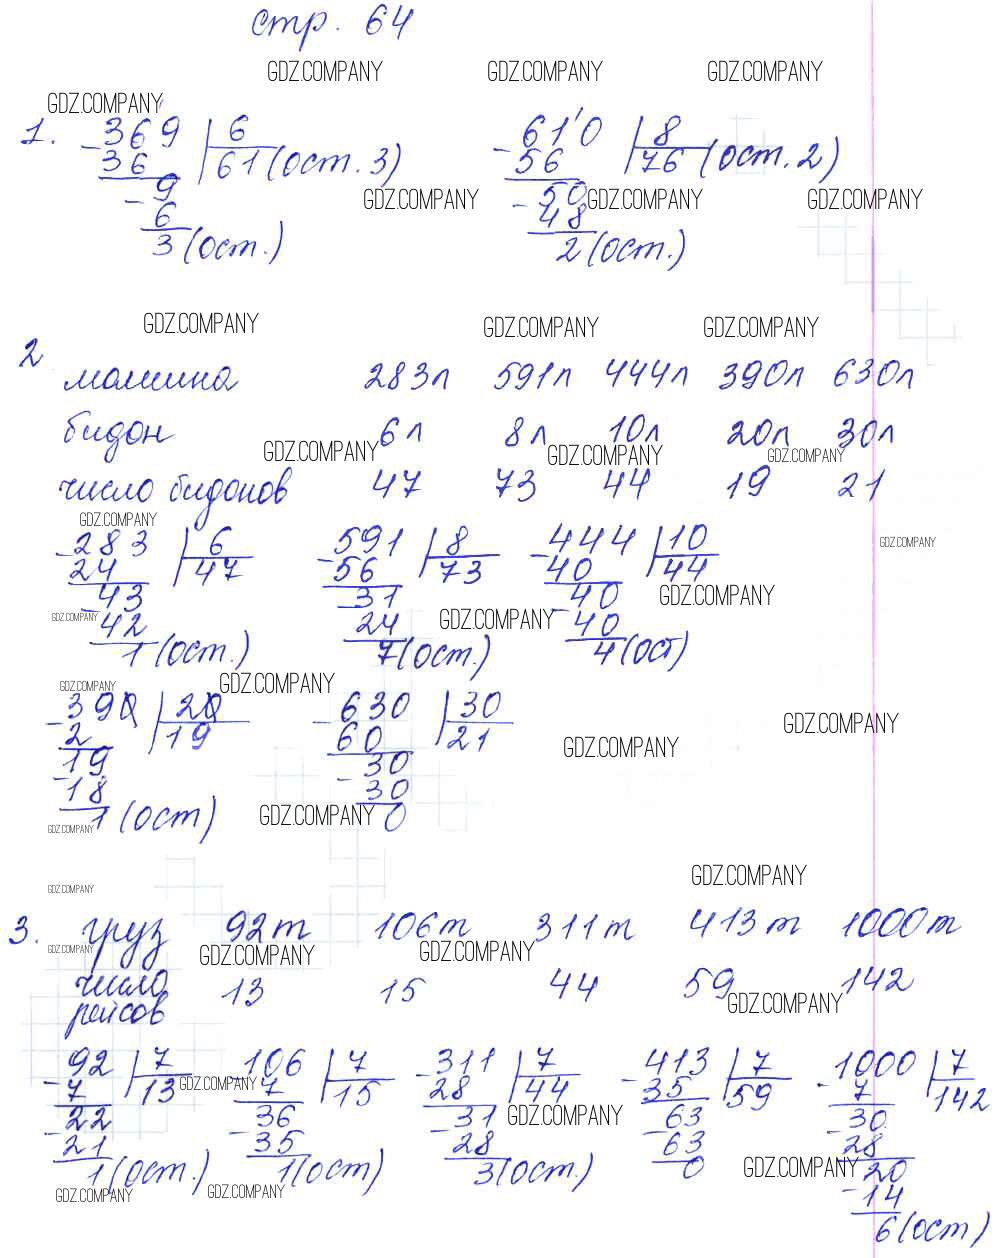 стр. 64
GDZ.COMPANY GDZ.COMPANY GDZ.COMPANY
GDZ.COMPANY
1. - 369 | 6 - 610 | 8
36 61 (ост. 3) 56 76 (ост. 2)
GDZ.COMPANY GDZ.COMPANY GDZ.COMPANY
- 9 - 50
6 48
3 (ост.) 2 (ост.)
GDZ.COMPANY GDZ.COMPANY GDZ.COMPANY
2 машина 283л 591л 444л 390л 630л
бидон 6л 8л 10л 20л 30л
GDZ.COMPANY GDZ.COMPANY GDZ.COMPANY
число бидонов 47 73 44 19 21
GDZ.COMPANY GDZ.COMPANY
- 283 | 6 - 591 | 8 - 444 | 10
24 47 56 73 40 44
- 43 - 31 - 40
GDZ.COMPANY
GDZ.COMPANY GDZ.COMPANY
42 24 40
1 (ост.) 7 (ост.) 4 (ост)
GDZ.COMPANY GDZ.COMPANY
- 390 | 20 - 630 | 30
2 19 60 21
GDZ.COMPANY GDZ.COMPANY
- 19 - 30
18 30
1 (ост) 0
GDZ.COMPANY GDZ.COMPANY
GDZ.COMPANY GDZ.COMPANY
3. груз 92т 106т 311т 413т 1000т
GDZ.COMPANY GDZ.COMPANY GDZ.COMPANY
число 13 15 44 59 142
рейсов
GDZ.COMPANY
- 92 | 7 - 106 | 7 - 311 | 7 - 413 | 7 - 1000 | 7
7 13 7 15 28 44 35 59 7 142
GDZ.COMPANY GDZ.COMPANY
- 22 - 36 - 31 - 63 - 30
21 35 28 63 28
1 (ост.) 1 (ост) 3 (ост.) 0 - 20
GDZ.COMPANY GDZ.COMPANY GDZ.COMPANY
14
6 (ост)